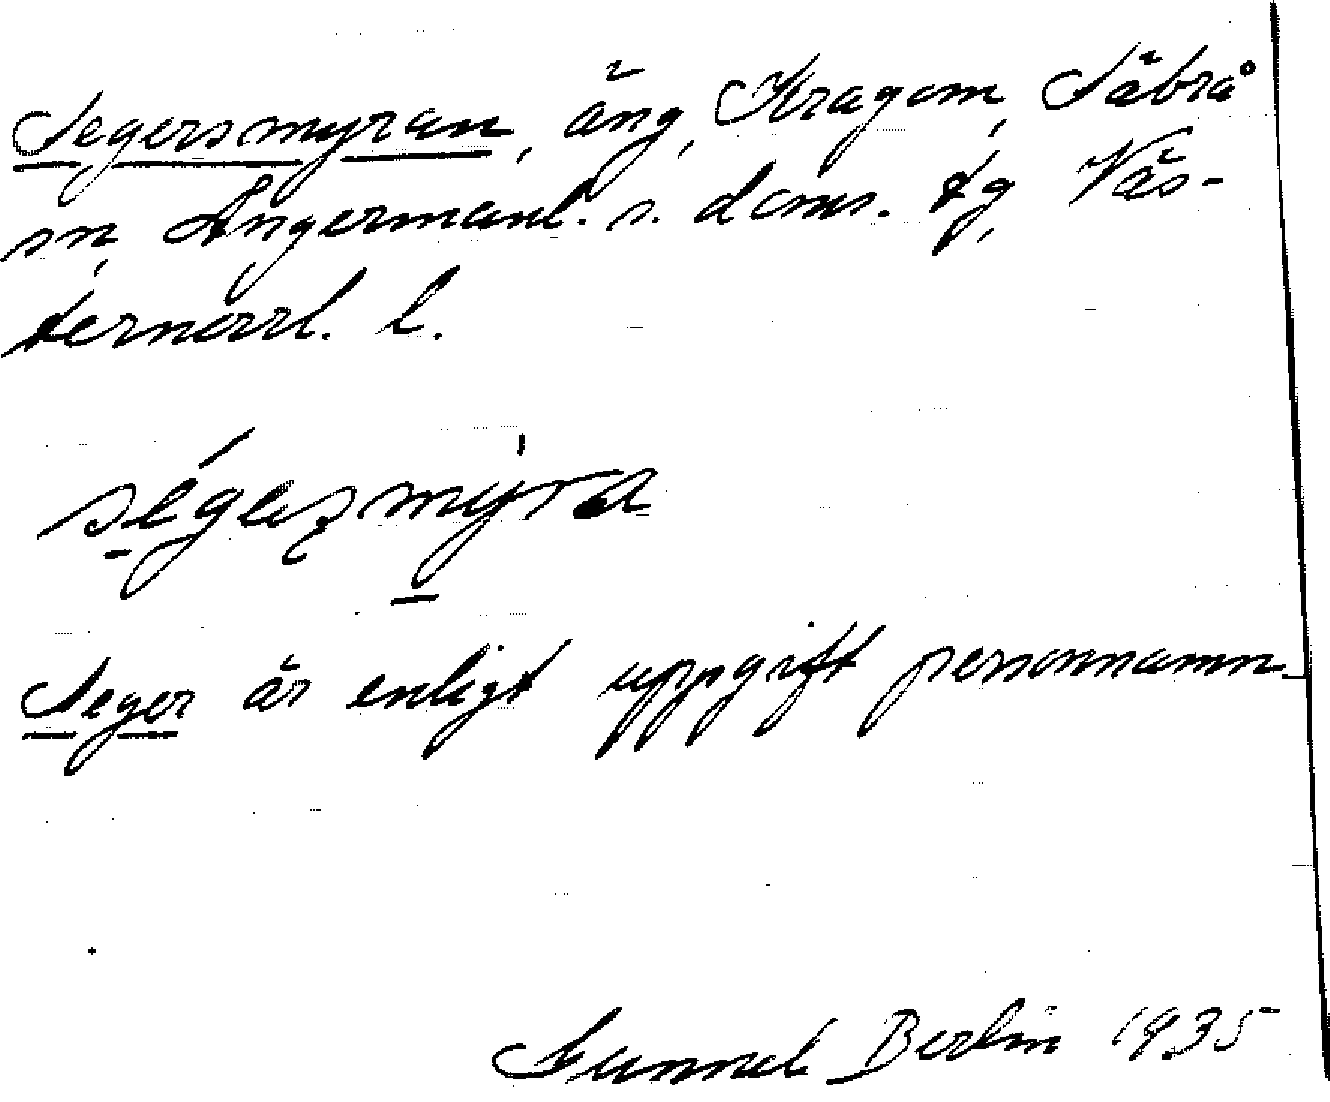 Segersmyran, äng, Kragom, Säbrå
sn, Ångermanl. s. doms. tg, Väs-
ternorrl. l.
ségeʂmy̍ra
Seger är enligt uppgift personnamn
Gunnel Berlin 1935